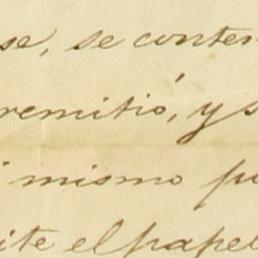 se, se conten
remitió, y s
mismo po
ite el papel